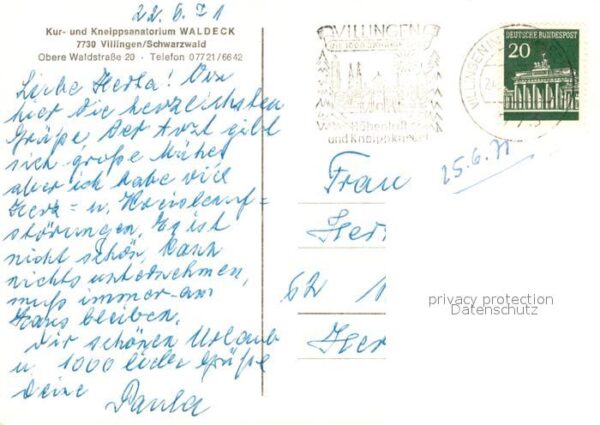 22.6.71
Kur- und Kneippsanatorium WALDECK
7730 Villingen/Schwarzwald
Obere Waldstraße 20 · Telefon 07721/6642
Liebe Herta! Von
hier die herzlichsten
Grüße. Der Arzt gibt
sich große Mühe,
aber ich habe viel
Herz- u. Kreislauf-
störungen. Es ist
nicht schön. Kann
nichts unternehmen,
muß immer am
Haus bleiben.
Dir schönen Urlaub
u. 1000 liebe Grüße
deine
Paula
VILLINGEN
und Kneippkurort
DEUTSCHE BUNDESPOST
20
25.6.71
Frau
Her
62
Her
privacy protection
Datenschutz